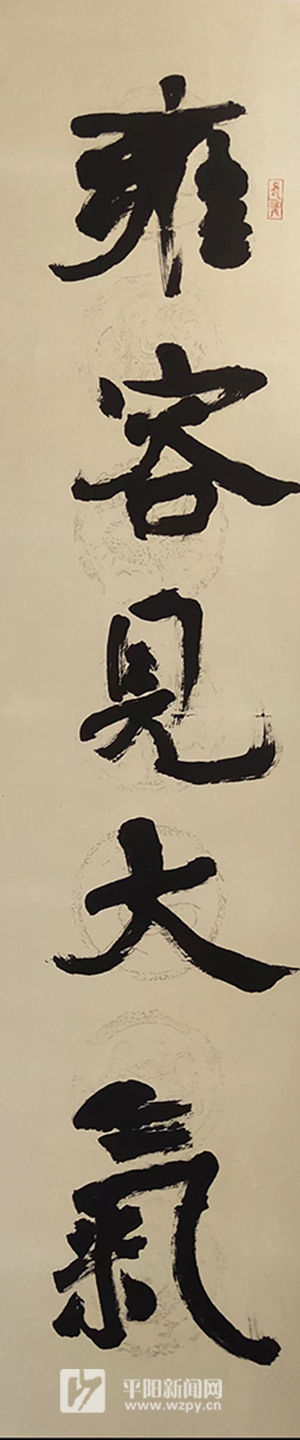 雍容見大氣
平阳新闻网
www.wzpy.cn